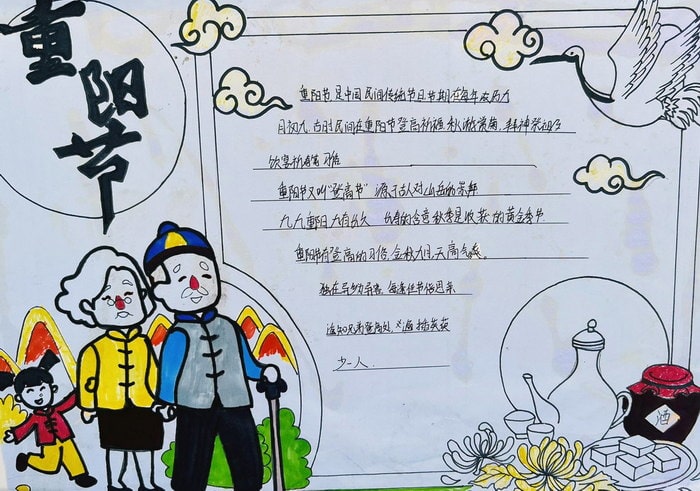 重阳节
重阳节,是中国民间传统节日节期在每年农历九
月初九,古时民间在重阳节登高祈福,秋游赏菊,拜神祭祖及
饮宴祈寿等习俗
重阳节又叫“登高节”源于古人对山岳的崇拜
九九重阳 久的含意秋季是收获的黄金季节
重阳节有登高的习俗,金秋九月,天高气爽。
独在异乡为异客 每逢佳节倍思亲
遥知兄弟登高处,遍插茱萸
少一人。
酒